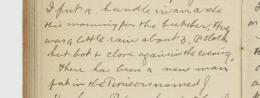 I put a handle in an ade
this morning for the butcher, They
was a little rain about 3. P. clock
but hot & close again in the evening,
There has been a new man
put in the Pioneers named